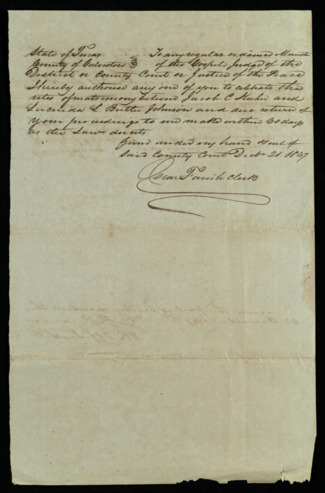 State of Texas To any regular ordained Minister
County of Galveston of the Gospel, Judge of the
District or County Court or Justice of the Peace
I hereby authorise any one of you to celebrate the
rites of matrimony between Jacob C Kuhn and
Lucinda L Johnson and due return of
your proceedings to me make within 60 days
as the Law directs
Given under my hand & seal of
said County Court Decr 21 1847
Oscar Farish Clerk